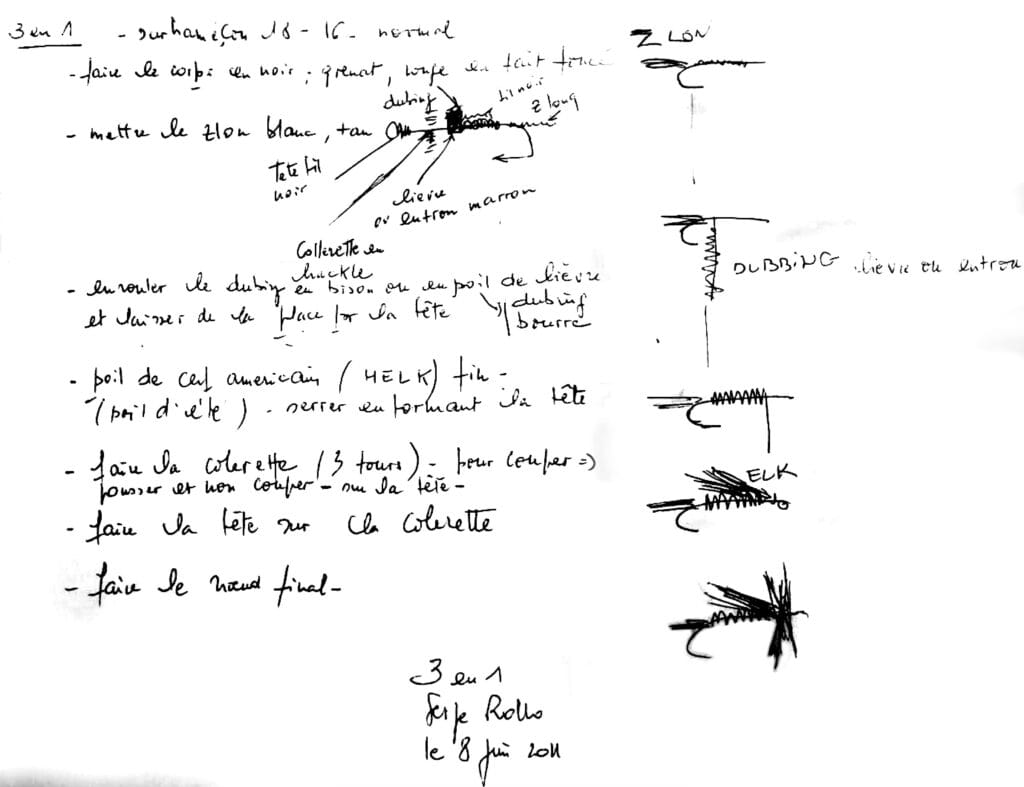 3 en 1 - sur hameçon 18 - 16 - normal
- faire le corps en noir, grenat, rouge en fait foncé
- mettre le zlon blanc, tan
dubing
fil noir
z long
Tete fil
noir
lievre
ou entron marron
Collerette en
hackle
- enrouler le dubing en bison ou en poil de lièvre
et laisser de la place pr la tête
dubing
bourre
- poil de cerf americain (HELK) fin -
(poil d'été) - serrer en formant la tête
- faire la colerette (3 tours) - pour couper =>
pousser et non couper - sur la tête -
- faire la tête sur la colerette
- faire le nœud final -
Z LON
DUBBING lievre ou entron
ELK
3 en 1
Serge Rollo
le 8 juin 2011